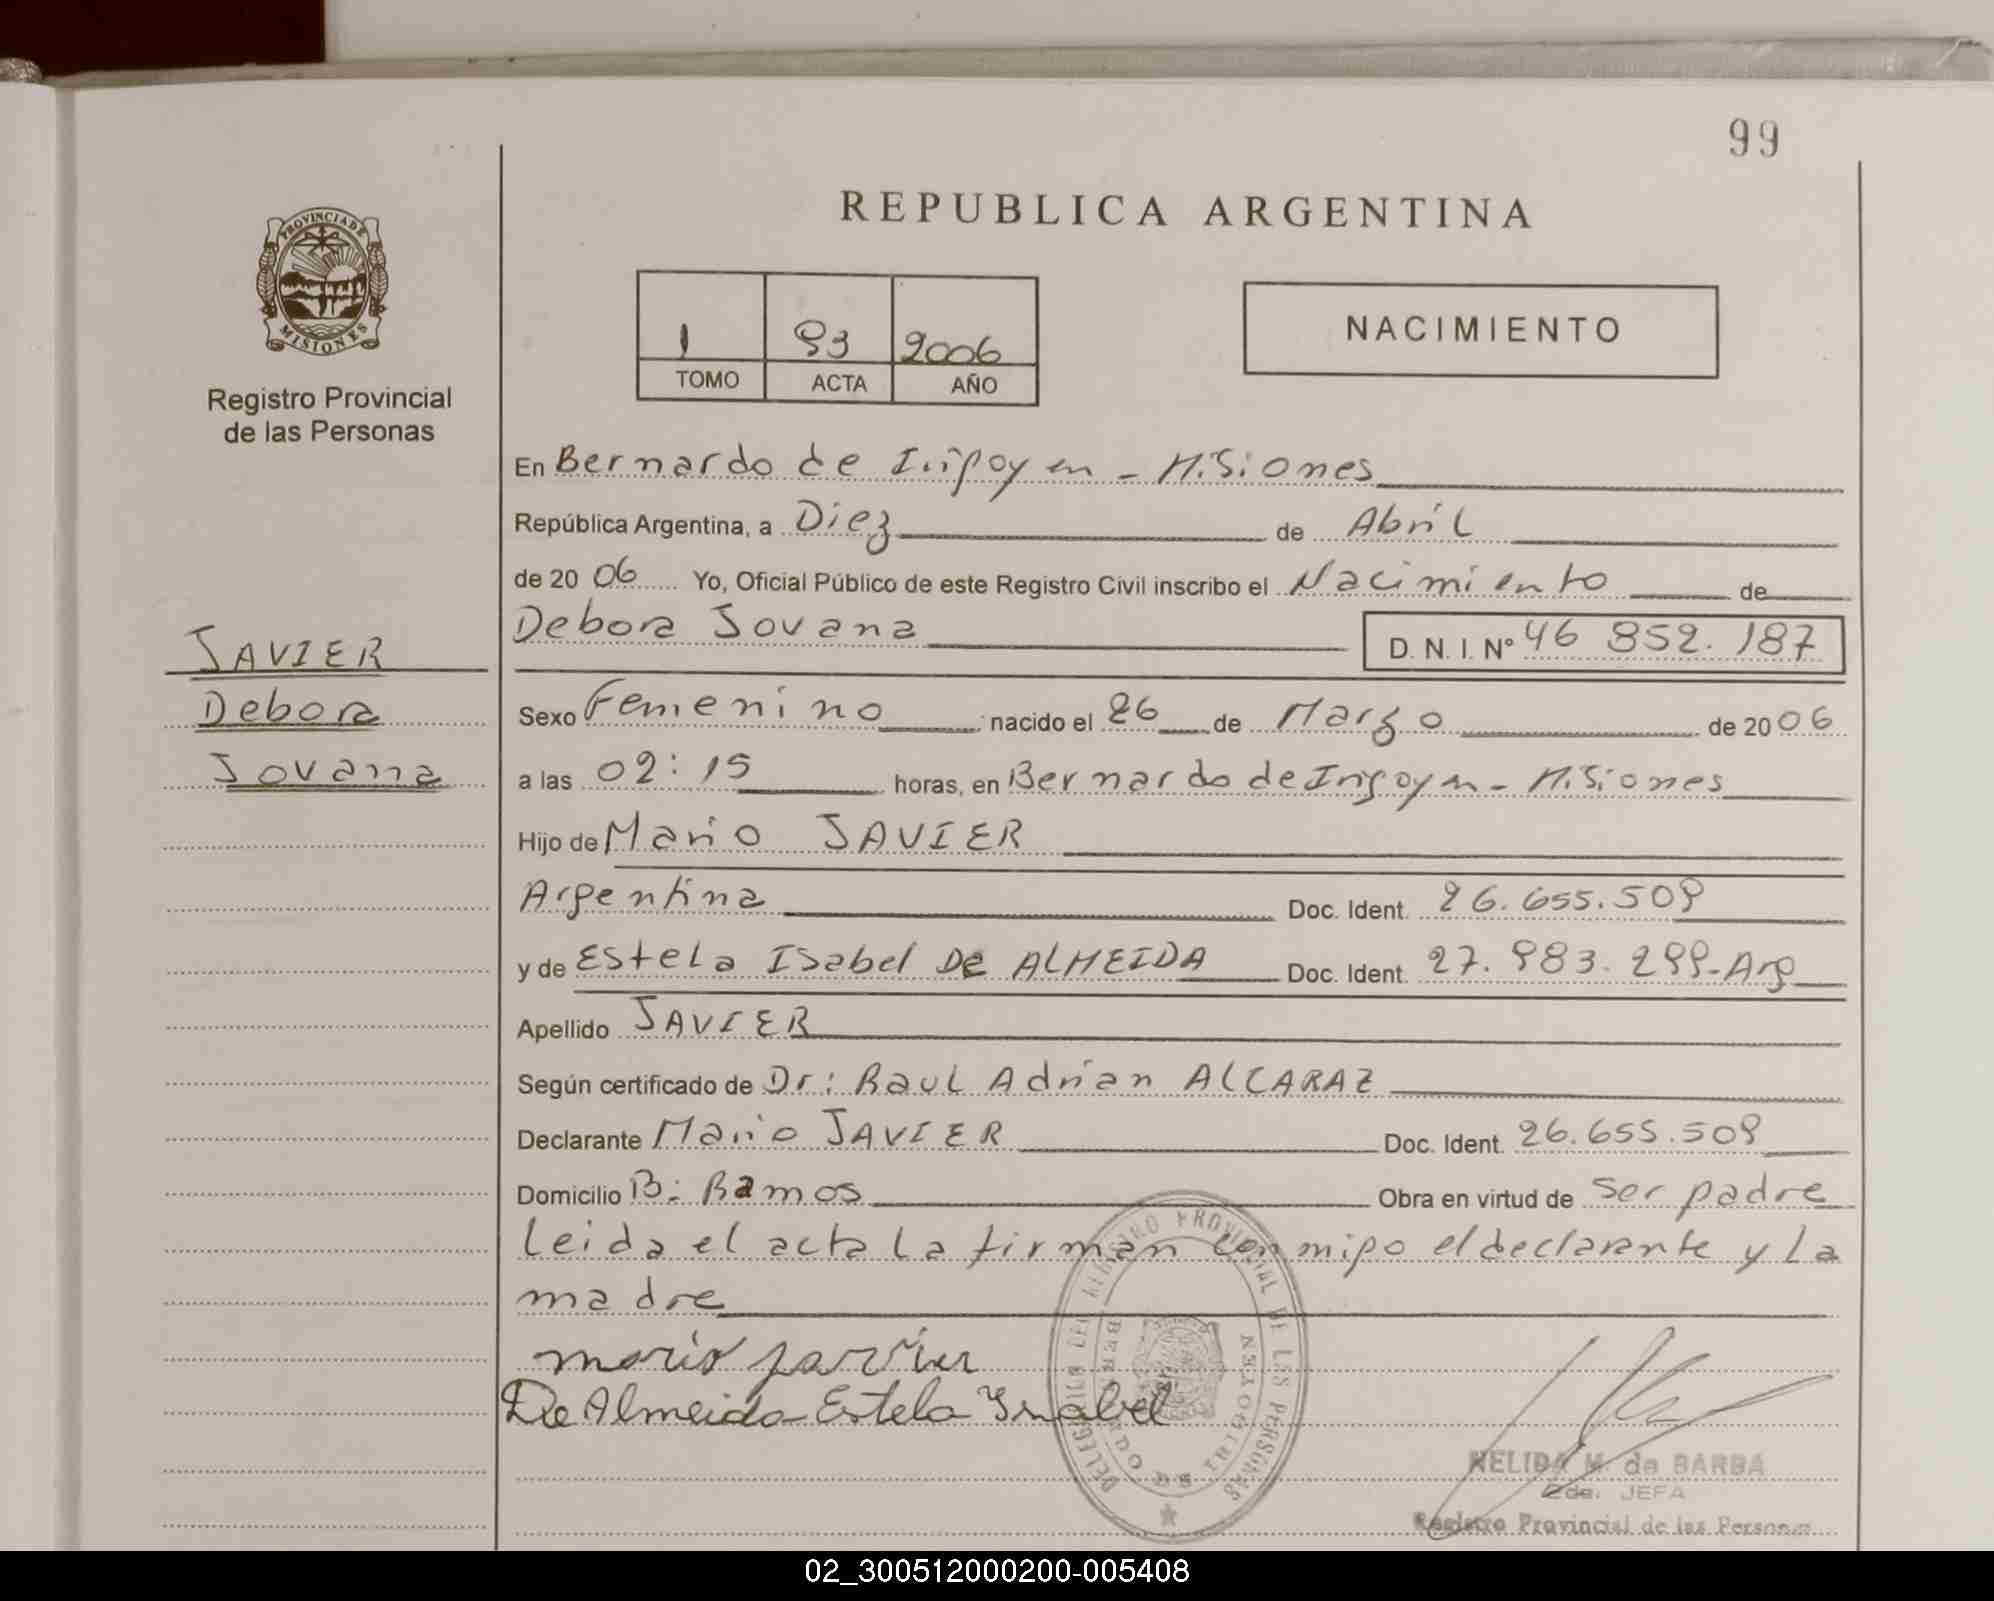 99
REPUBLICA ARGENTINA
PROVINCIA DE
MISIONES
Registro Provincial
de las Personas
1 93 2006
TOMO ACTA AÑO
NACIMIENTO
En Bernardo de Irigoyen - Misiones
República Argentina, a Diez de Abril
de 2006 Yo, Oficial Público de este Registro Civil inscribo el Nacimiento de
Debora Jovana D. N. I. Nº 46 852. 187
JAVIER
Debora
Jovana
Sexo Femenino nacido el 26 de Marzo de 2006
a las 02:15 horas, en Bernardo de Irigoyen - Misiones
Hijo de Mario JAVIER
Argentina Doc. Ident. 26.655.509
y de Estela Isabel De ALMEIDA Doc. Ident. 27.983.299-Arg
Apellido JAVIER
Según certificado de Dr: Raul Adrian ALCARAZ
Declarante Mario JAVIER Doc. Ident. 26.655.509
Domicilio B: Ramos Obra en virtud de ser padre
Leida el acta La firman conmigo el declarante y La
madre
mario javier
De Almeida Estela Ysabel
DELEGACION DEL REGISTRO PROVINCIAL DE LAS PERSONAS
BERNARDO DE IRIGOYEN
NELIDA M. de BARBA
2da. JEFA
Registro Provincial de las Personas
02_300512000200-005408